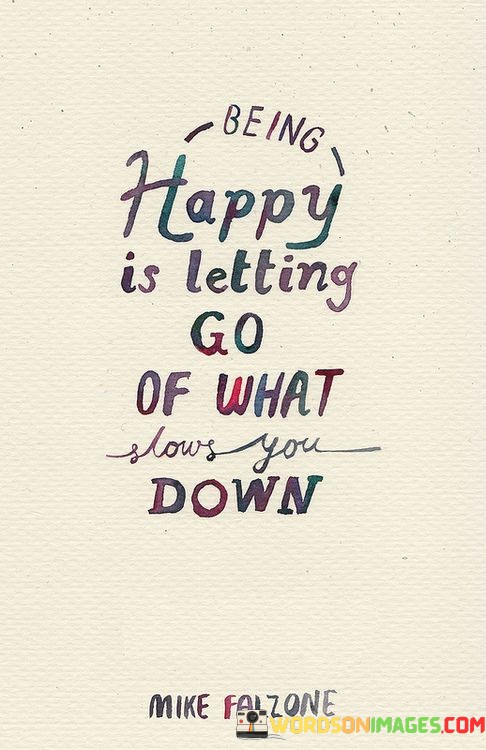 BEING
Happy
is letting
GO
OF WHAT
slows you
DOWN
MIKE FALZONE
WORDSONIMAGES.COM